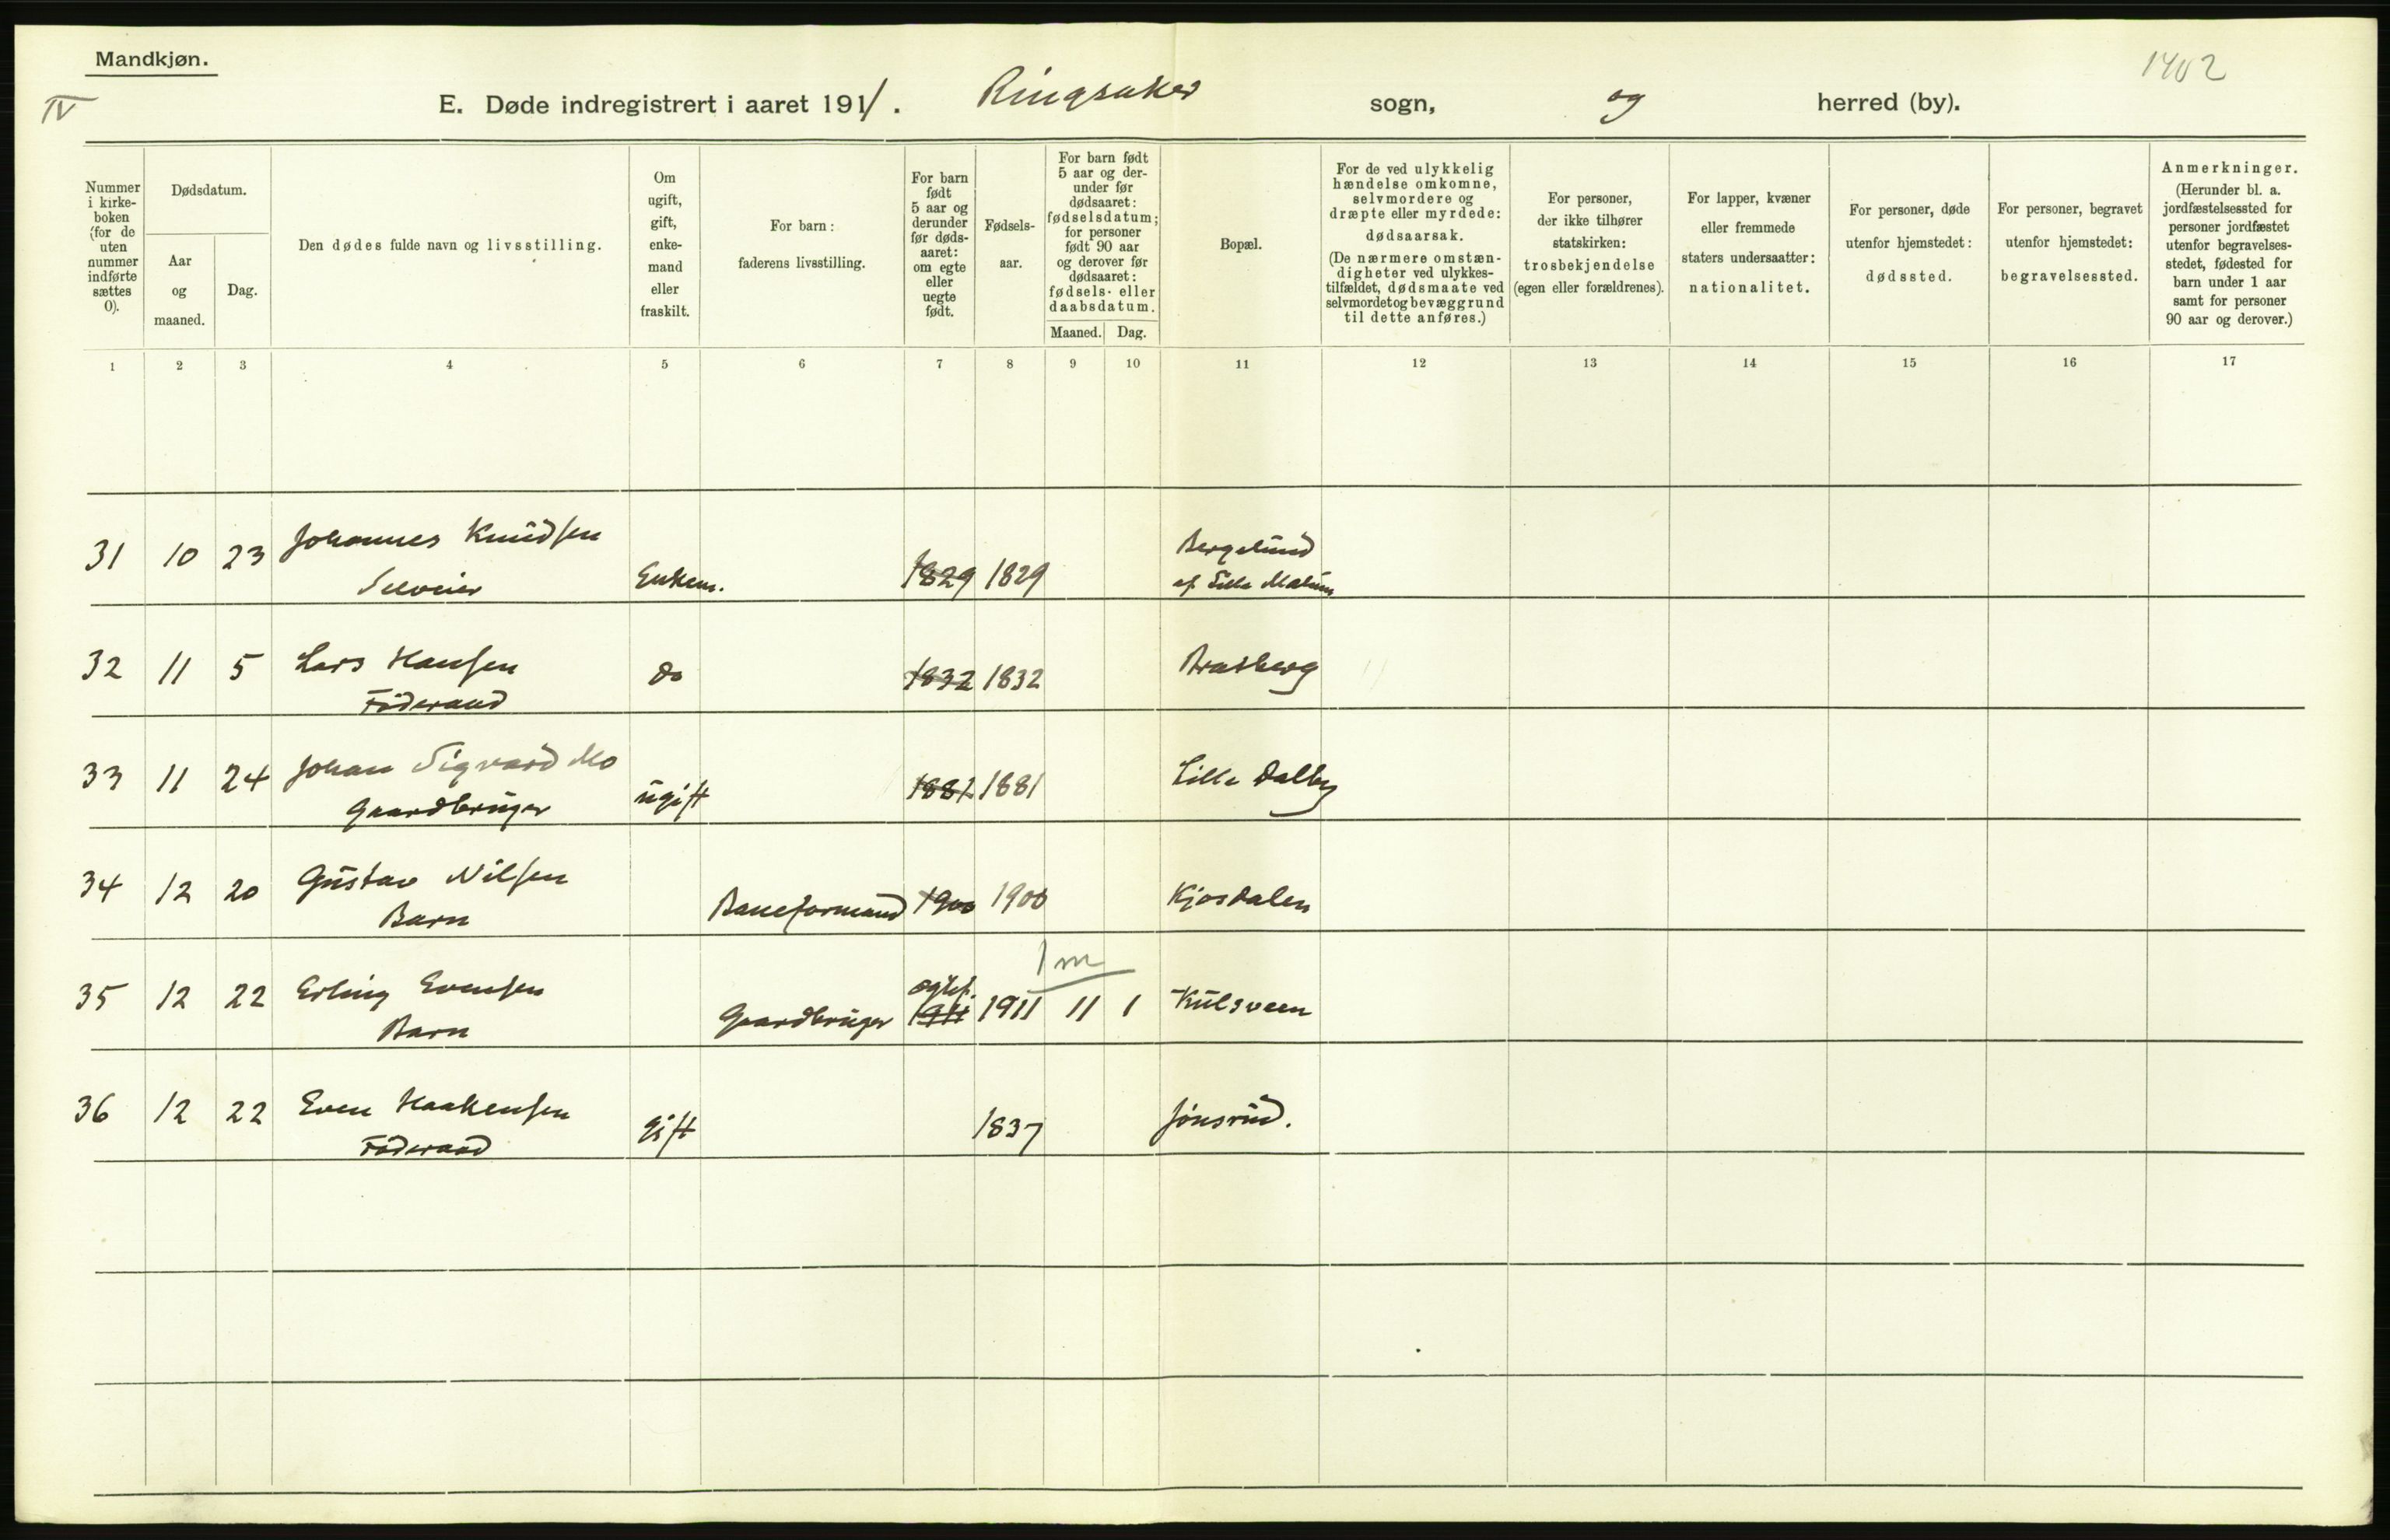 Mandkjøn.
1402
IV
E. Døde indregistrert i aaret 1911. Ringsaker sogn, og herred (by).
Nummer
i kirke-
boken
(for de
uten
nummer
indførte
sættes
0).
Dødsdatum.
Aar
og
maaned.
Dag.
Den dødes fulde navn og livsstilling.
Om
ugift,
gift,
enke-
mand
eller
fraskilt.
For barn:
faderens livsstilling.
For barn
født
5 aar og
derunder
før døds-
aaret:
om egte
eller
uegte
født.
Fødsels-
aar.
For barn født
5 aar og der-
under før
dødsaaret:
fødselsdatum;
for personer
født 90 aar
og derover før
dødsaaret:
fødsels- eller
daabsdatum.
Maaned. Dag.
Bopæl.
For de ved ulykkelig
hændelse omkomne,
selvmordere og
dræpte eller myrdede:
dødsaarsak.
(De nærmere omstæn-
digheter ved ulykkes-
tilfældet, dødsmaate ved
selvmordet og bevæggrund
til dette anføres.)
For personer,
der ikke tilhører
statskirken:
trosbekjendelse
(egen eller forældrenes).
For lapper, kvæner
eller fremmede
staters undersaatter:
nationalitet.
For personer, døde
utenfor hjemstedet:
dødssted.
For personer, begravet
utenfor hjemstedet:
begravelsessted.
Anmerkninger.
(Herunder bl. a.
jordfæstelsessted for
personer jordfæstet
utenfor begravelses-
stedet, fødested for
barn under 1 aar
samt for personer
90 aar og derover.)
1 2 3 4 5 6 7 8 9 10 11 12 13 14 15 16 17
31 10 23 Johannes Knudsen
Selveier Enkem. 1829 1829 Bergelund
af Lille
32 11 5 Lars Hansen
Föderaad do 1832 1832 Bratberg
33 11 24 Johan Sigvard Mo
Gaardbruger ugift 1881 1881 Lille Dalby
34 12 20 Gustav Nilsen
Barn Baneformand 1900 1900 Kjosdalen
1 m
35 12 22 Erling Evensen
Barn Gaardbruger 1911 1911 11 1 Kulsveen
36 12 22 Even Haakensen
Föderaad gift 1837 Jönsrud.